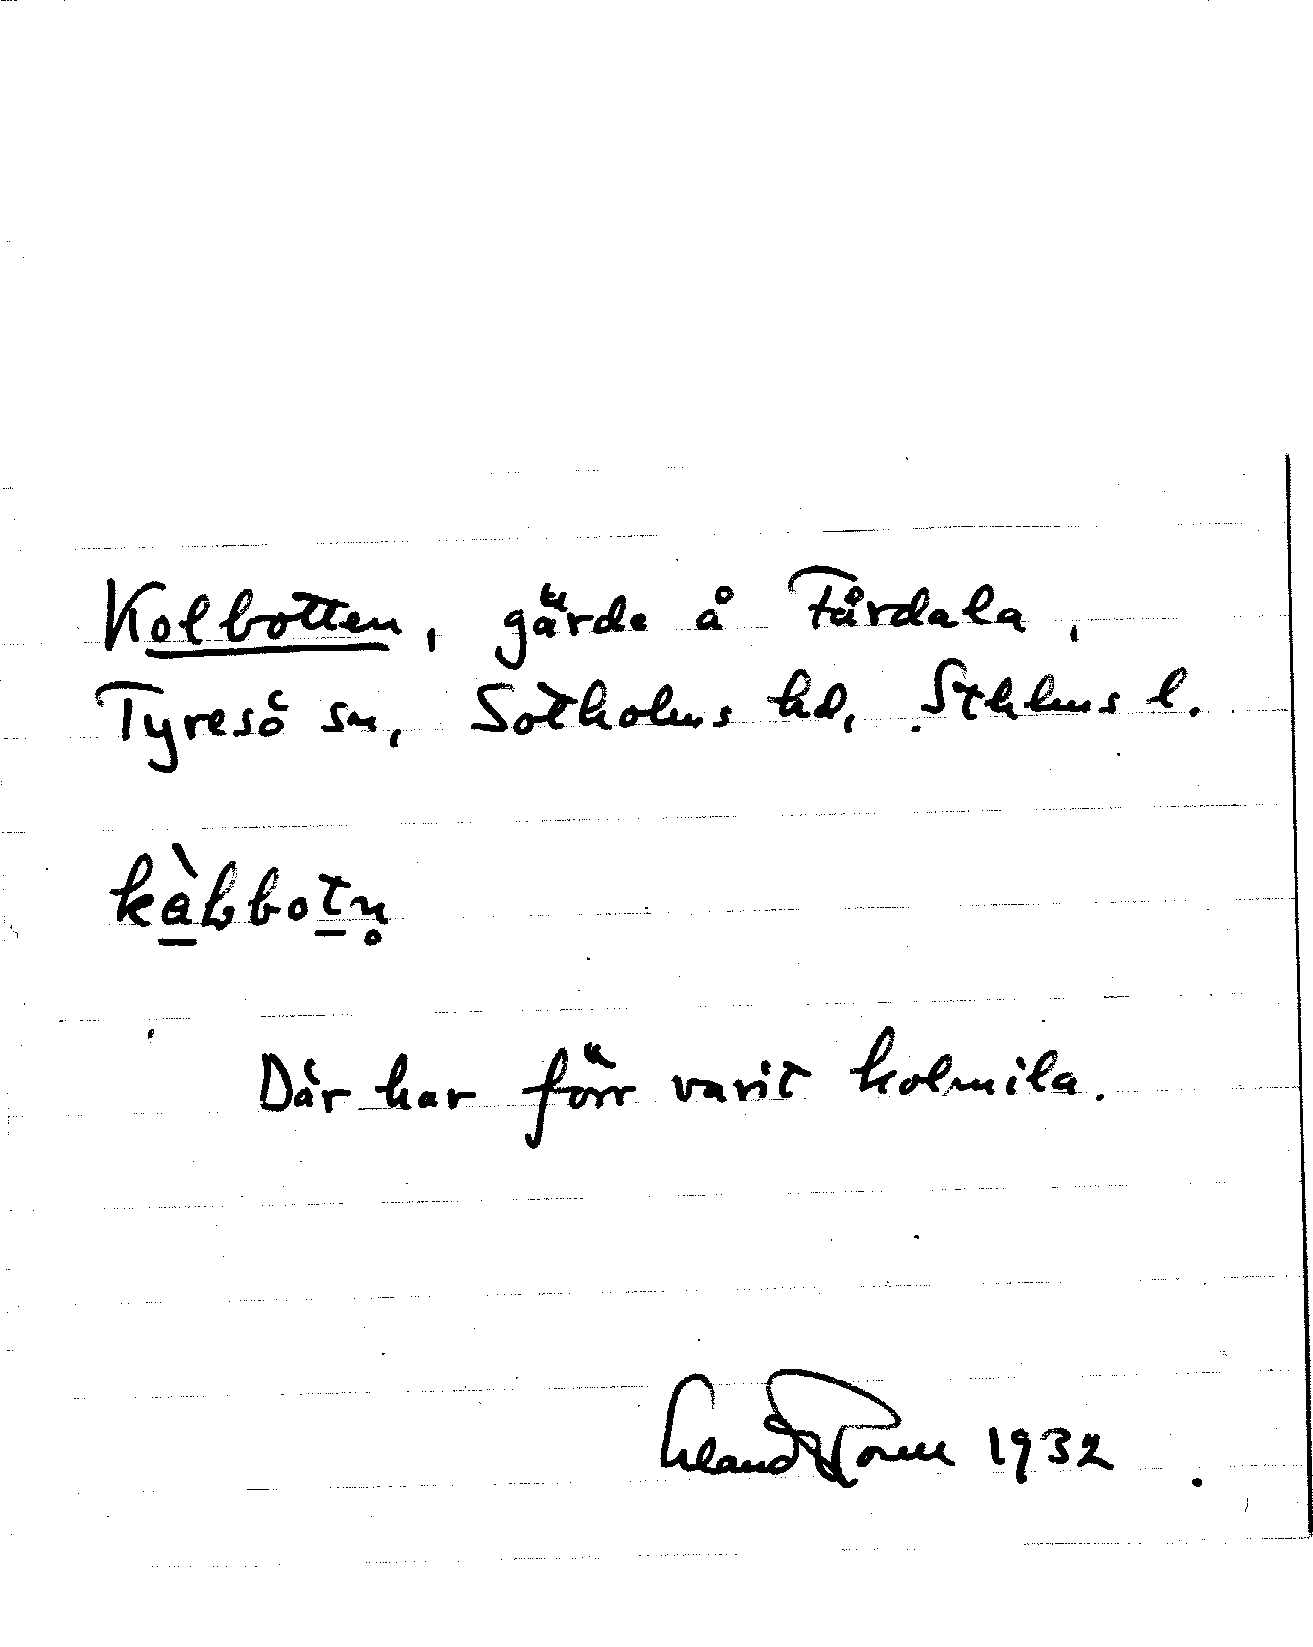 Kolbotten, gärde å Fårdala,
Tyresö sn, Sotholms hd, Sthlms l.
kàbbotn̥
Där har förr varit kolmila.
1932